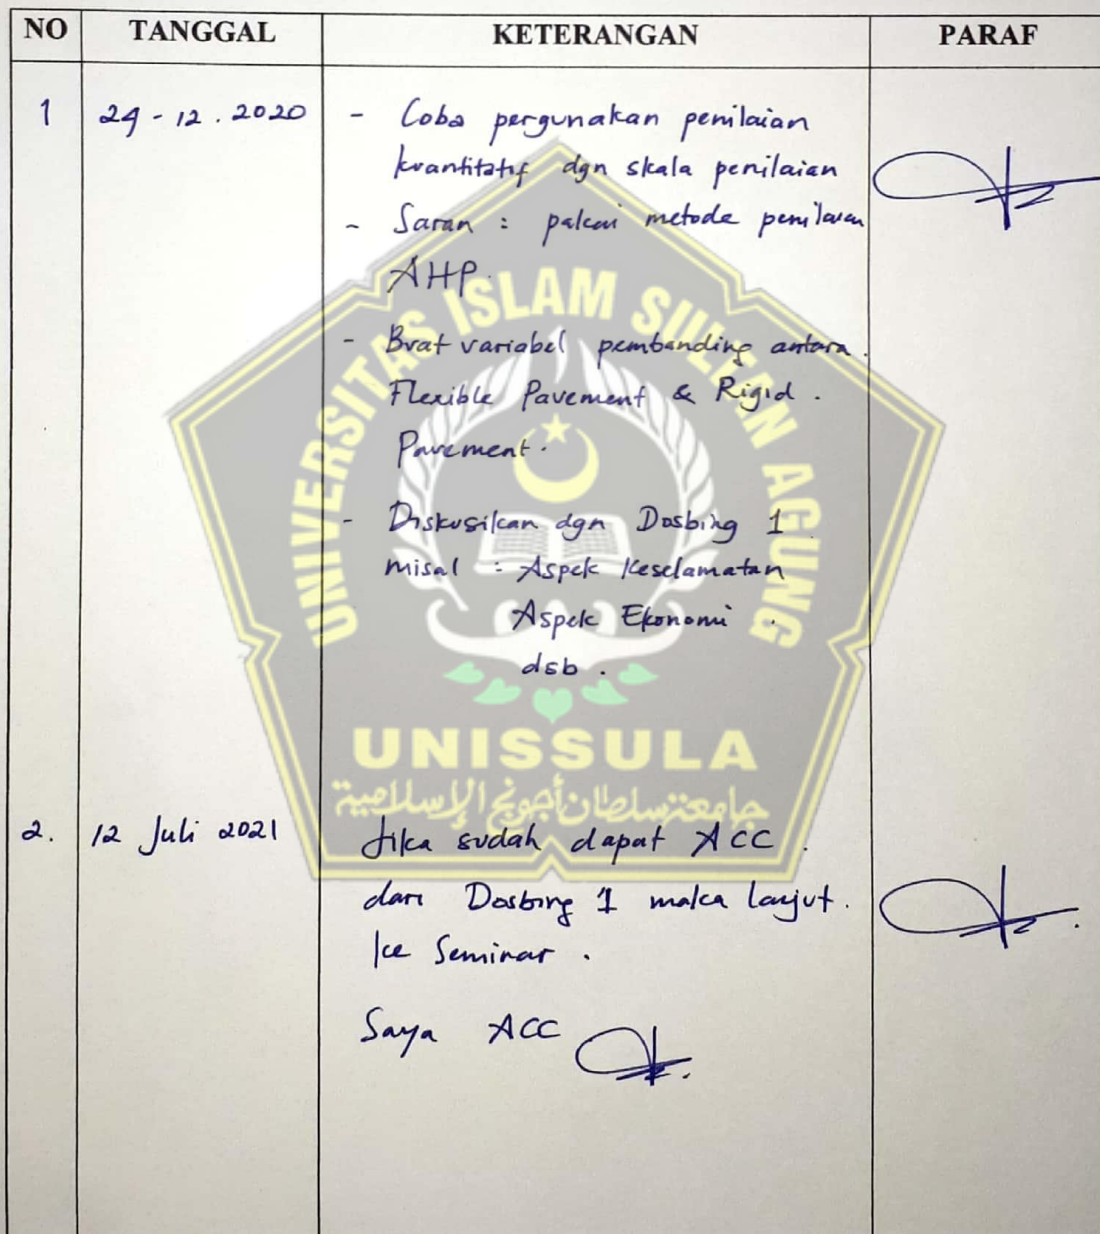 NO TANGGAL KETERANGAN PARAF
1 24 - 12 . 2020 - Coba pergunakan penilaian
kuantitatif dgn skala penilaian
- Saran : pakai metode penilaian
AHP.
- Buat variabel pembanding antara
Flexible Pavement & Rigid
Pavement.
- Diskusikan dgn Dosbing 1
misal : Aspek Keselamatan
Aspek Ekonomi
dsb .
2. 12 Juli 2021 Jika sudah dapat ACC
dari Dosbing 1 maka lanjut
ke Seminar .
Saya ACC
UNIVERSITAS ISLAM SULTAN AGUNG
UNISSULA
جامعة سلطان أجونج الإسلامية